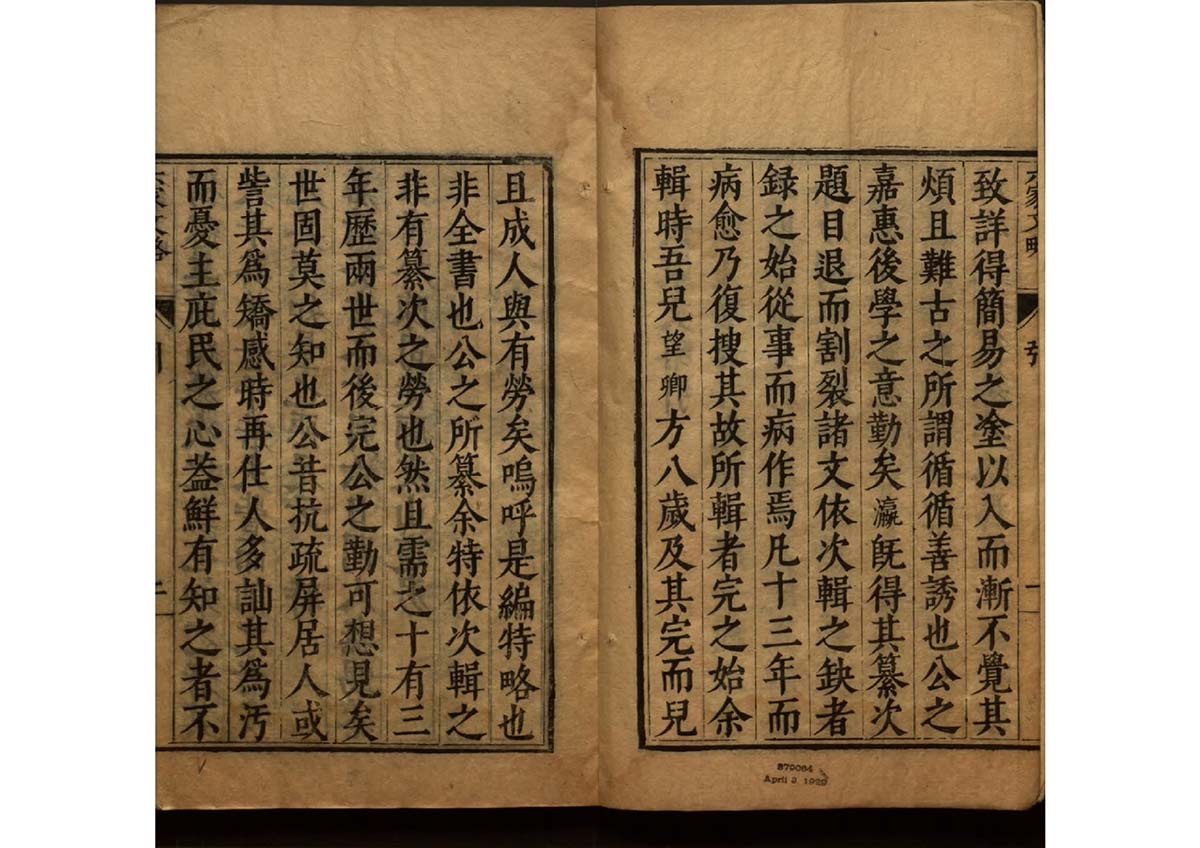 致詳得簡易之塗以入而漸不覺其
煩且難古之所謂循循善誘也公之
嘉惠後學之意勤矣瀛旣得其纂次
題目退而割裂諸文依次輯之缺者
録之始從事而病作焉凡十三年而
病愈乃復搜其故所輯者完之始余
輯時吾兒望卿方八歲及其完而兒
且成人與有勞矣嗚呼是編特略也
非全書也公之所纂余特依次輯之
非有纂次之勞也然且需之十有三
年歷兩世而後完公之勤可想見矣
世固莫之知也公昔抗疏屏居人或
訾其爲矯感時再仕人多訕其爲汚
而憂主庇民之心葢鮮有知之者不
家文略
April 3 1929